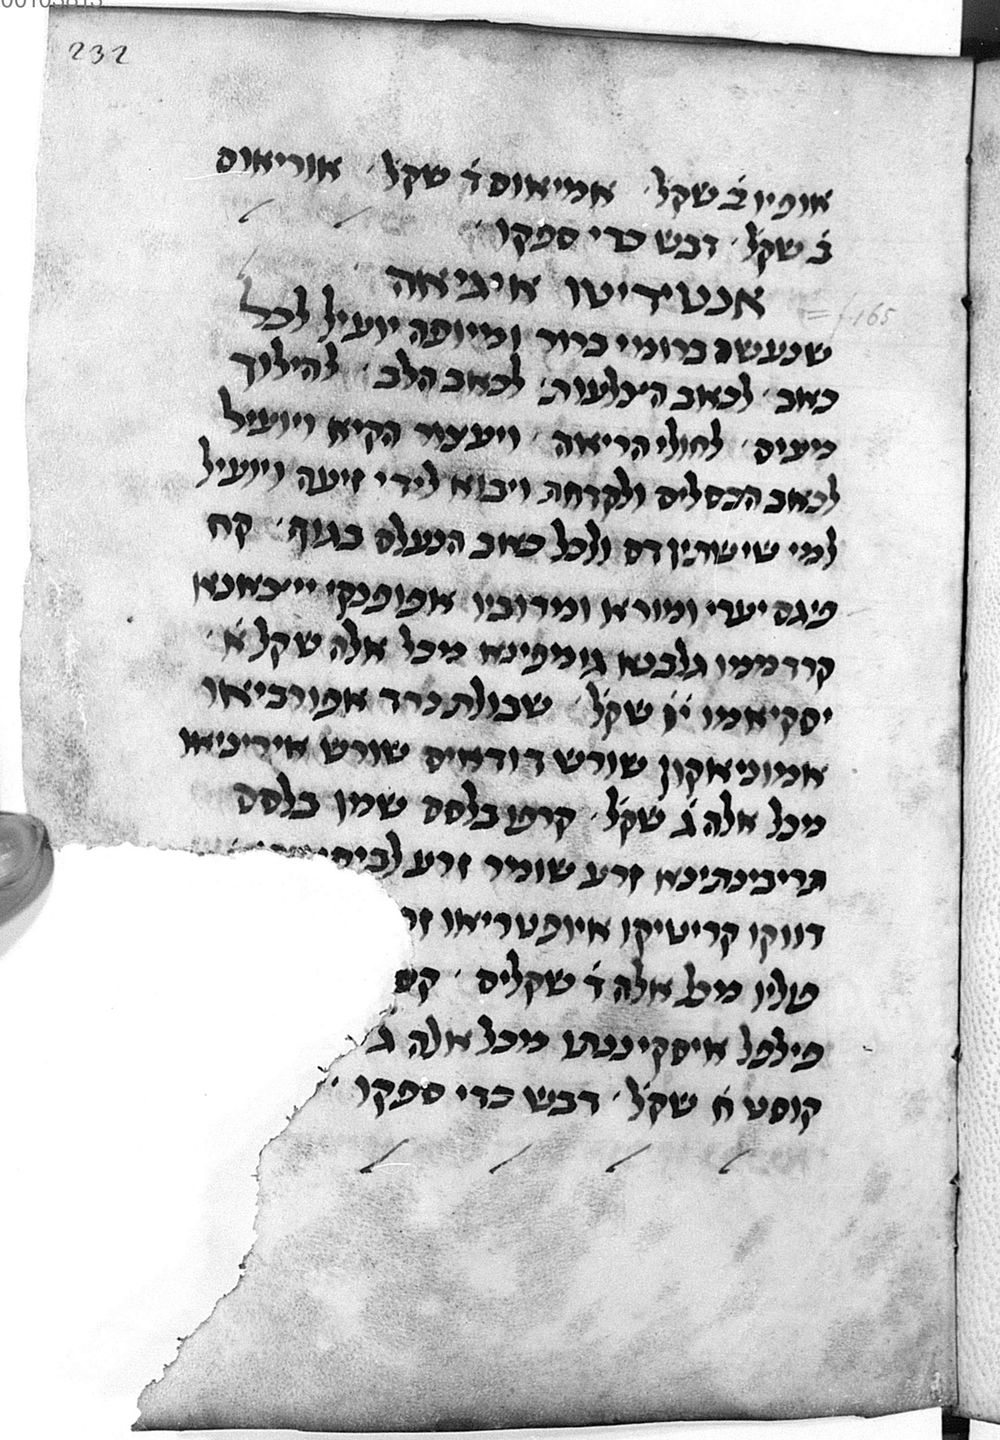 232
אופיו ב̇ שקל̇ אמיאוס ד̇ שקל̇ אוריאוס
ב̇ שקל̇ דבש כדי ספקו
אנטידיטו איגיאה
= f. 165
שנעשה ברומי ברור ומיופה יועיל לכל
כאב לכאב הצלעות לכאב הלב להילוך
מעים לחולי הריאה ויעצור הקיא ויועיל
לכאב הכסלים ולקדחת ויבוא לידי זיעה ויועיל
למי שישתין דם ולכל כאב הנעלם בגוף קח
פיגם יערי ומורא ומרוביו אפופנקי
קרדממו גלבנא גומפינא מכל אלה שקל א̇
יסקיאמו י̇ו̇ שקל̇ שבולת נרד אפורביאו
אמוניאקון שורש דודאים שורש איריניאו
מכל אלה ג̇ שקל̇ קרפו בלסם שמן בלסם
טריבינתינא זרע שומר זרע
דווקו קריטיקו איופטריאו
טליו מכל אלה ד̇ שקלים
פילפל איסקיננתו מכל אלה ג̇
קוסט ח̇ שקל̇ דבש כדי ספקו